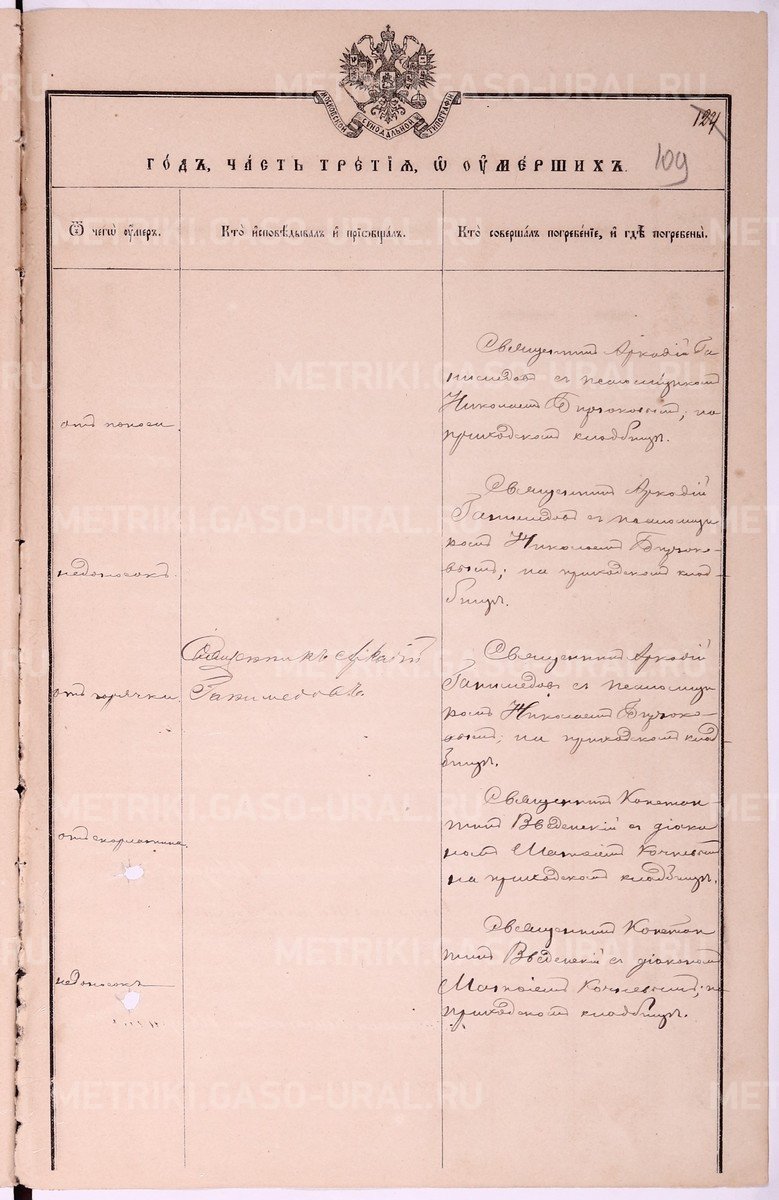 МОСКОВСКОЙ СѴНОДАЛЬНОЙ ТИПОГРАФІИ
124
109
ГО́ДЪ, ЧА́СТЬ ТРЕ́ТІѦ, Ѡ ОУМЕ́РШИХЪ.
Ѿ чегѡ̀ оу́меръ.
Кто̀ и҆сповѣ́дывалъ и҆ прїѡбща́лъ.
Кто̀ соверша́лъ погребе́нїе, и҆ гдѣ̀ погребены̀.
отъ поноса.
Священникъ Аркадій Га
нимедовъ съ псаломщикомъ
Николаемъ Бирюковымъ; на
приходскомъ кладбищѣ.
недоносокъ.
Священникъ Аркадій
Ганимедовъ съ псаломщи
комъ Николаемъ Бирюко-
вымъ; на приходскомъ клад-
бищѣ.
отъ горячки.
Священникъ Аркадій
Ганимедовъ
Священникъ Аркадій
Ганимедовъ съ псаломщи
комъ Николаемъ Бирюко-
вымъ; на приходскомъ клад-
бищѣ.
отъ скарлатины.
Священникъ Констан-
тинъ Введенскій съ діако
номъ
на приходскомъ кладбищѣ.
недоносокъ
Священникъ Констан
тинъ Введенскій съ діакономъ
на
приходскомъ кладбищѣ.
METRIKI.GASO-URAL.RU